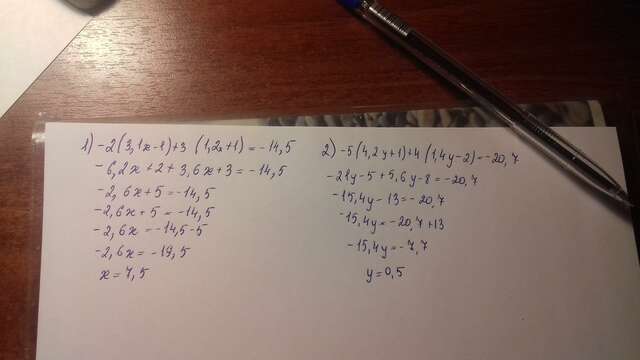 1) -2(3,1x-1)+3 (1,2x+1) = -14,5
-6,2x+2+3,6x+3 = -14,5
-2,6x+5 = -14,5
-2,6x+5 = -14,5
-2,6x = -14,5-5
-2,6x = -19,5
x = 7,5
2) -5(4,2y+1)+4(1,4y-2) = -20,7
-21y-5+5,6y-8 = -20,7
-15,4y-13 = -20,7
-15,4y = -20,7+13
-15,4y = -7,7
y = 0,5